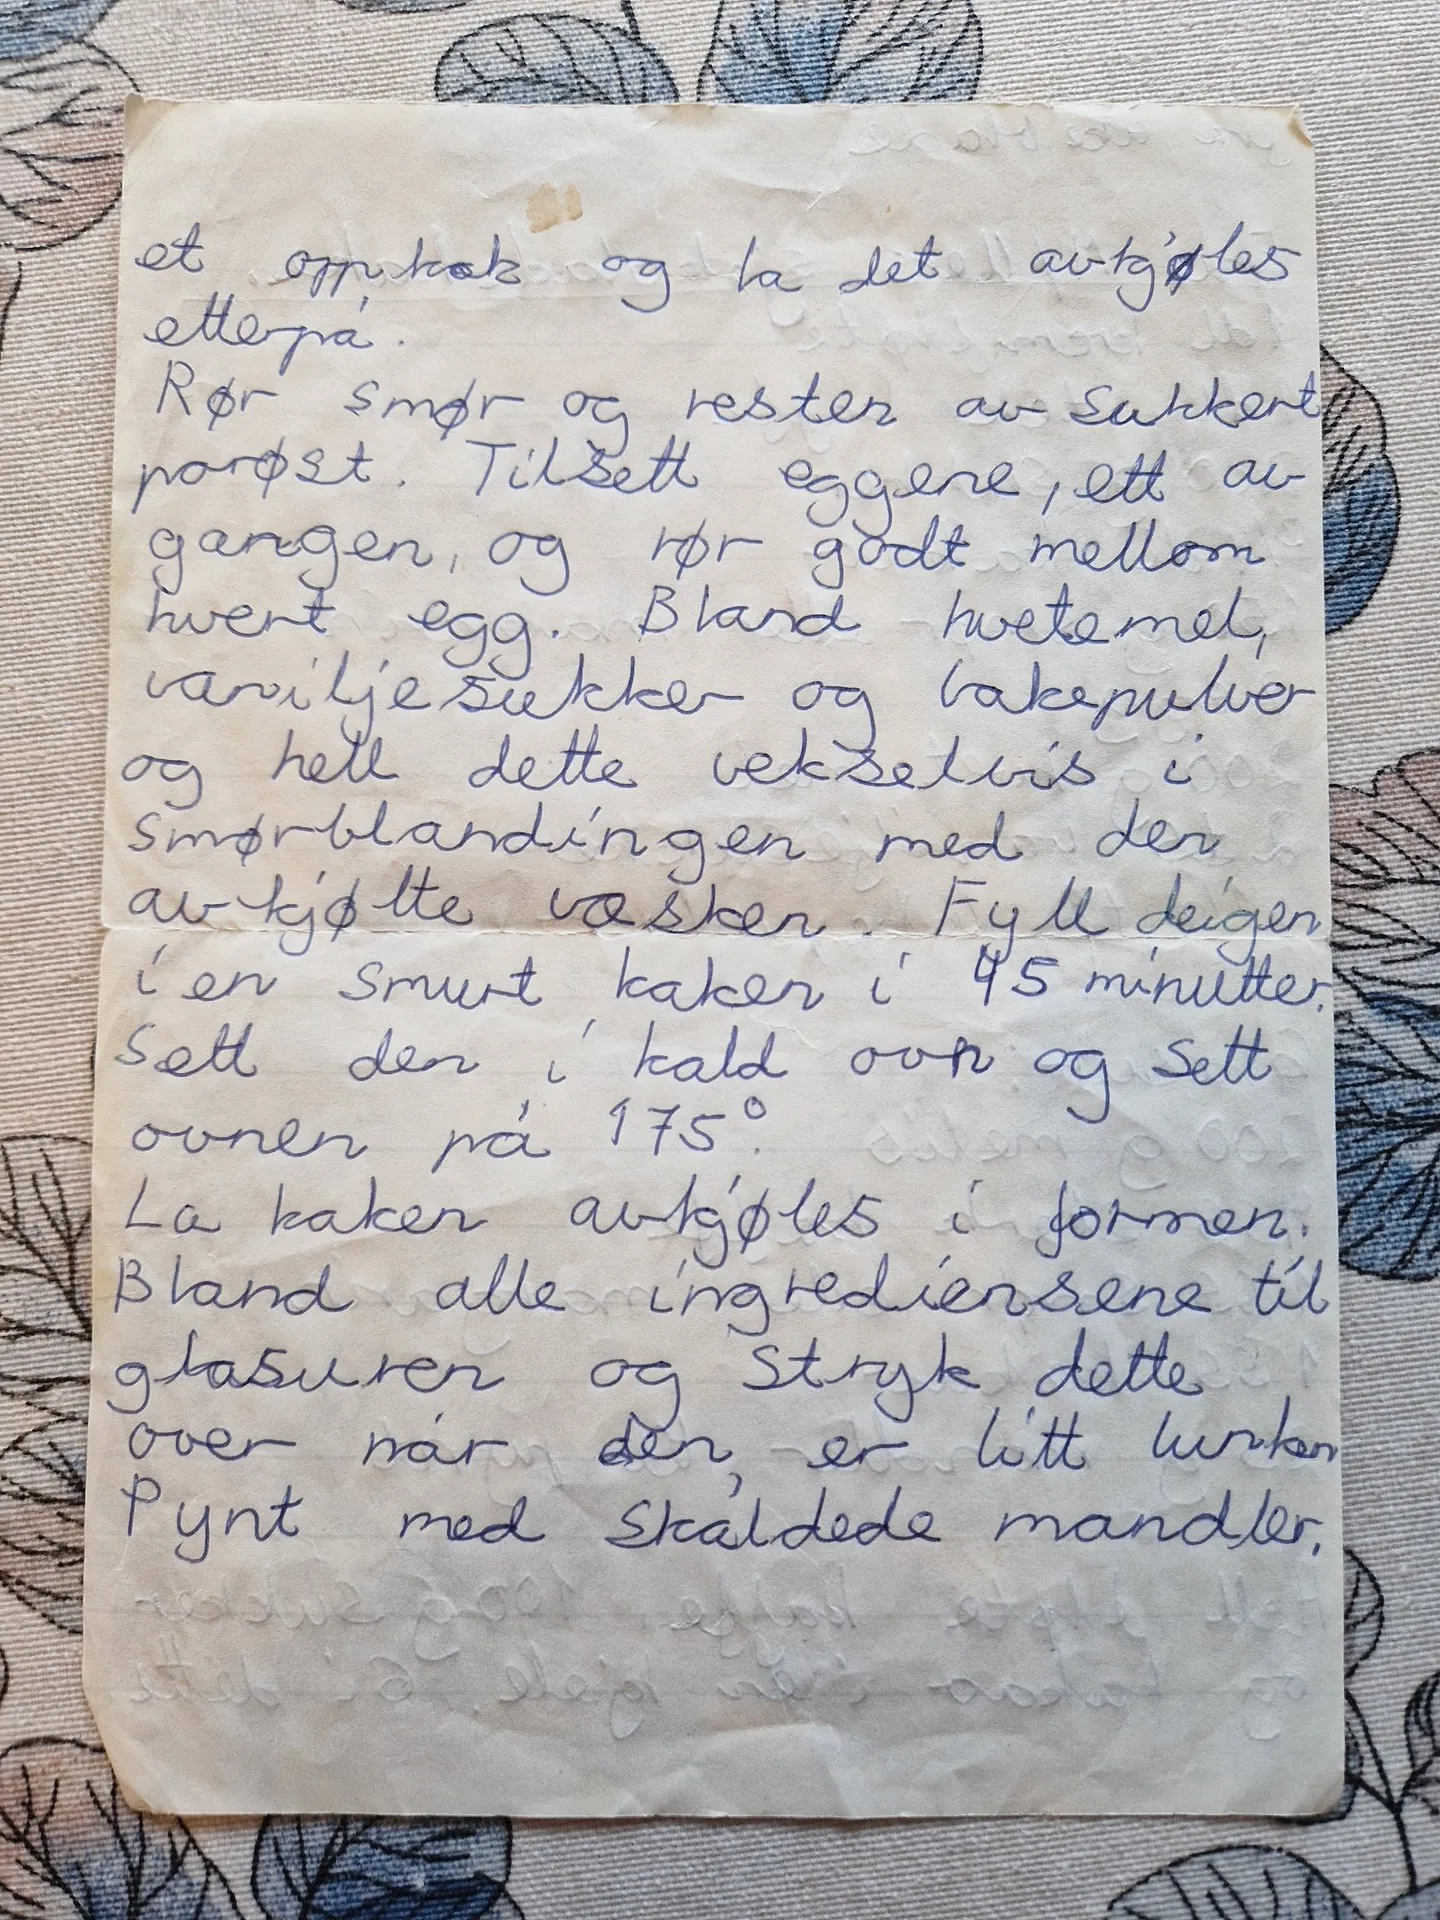 et oppkok og la det avkjøles
etterpå.
Rør smør og resten av sukkert
porøst. Tilsett eggene, ett av
gangen, og rør godt mellom
hvert egg. Bland hvetemel,
vaniljesukker og bakepulver
og hell dette vekselvis i
smørblandingen med den
avkjølte væsken. Fyll deigen
i en smurt kaken i 45 minutter.
Sett den i kald ovn og sett
ovnen på 175°.
La kaken avkjøles i formen.
Bland alle ingrediensene til
glasuren og stryk dette
over når den, er litt lunken
Pynt med skåldede mandler.